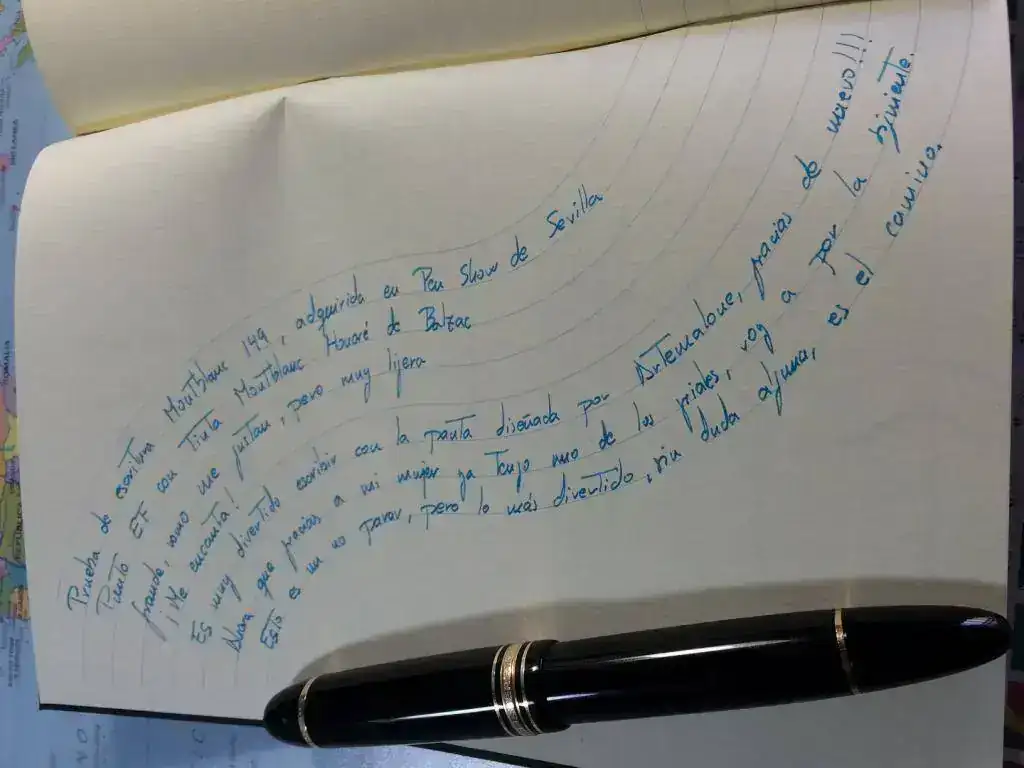 Prueba de escritura Montblanc 149, adquirida en Pen Show de Sevilla
Punto EF con Tinta Montblanc Honoré de Balzac
grande, como me gustan, pero muy lijera
¡Me encanta!
Es muy divertido escribir con la pauta diseñada por Artemalone, gracias de nuevo!!!
Ahora que gracias a mi mujer ya tengo uno de los griales, voy a por la siguiente.
Esto es un no parar, pero lo más divertido, sin duda alguna, es el camino.